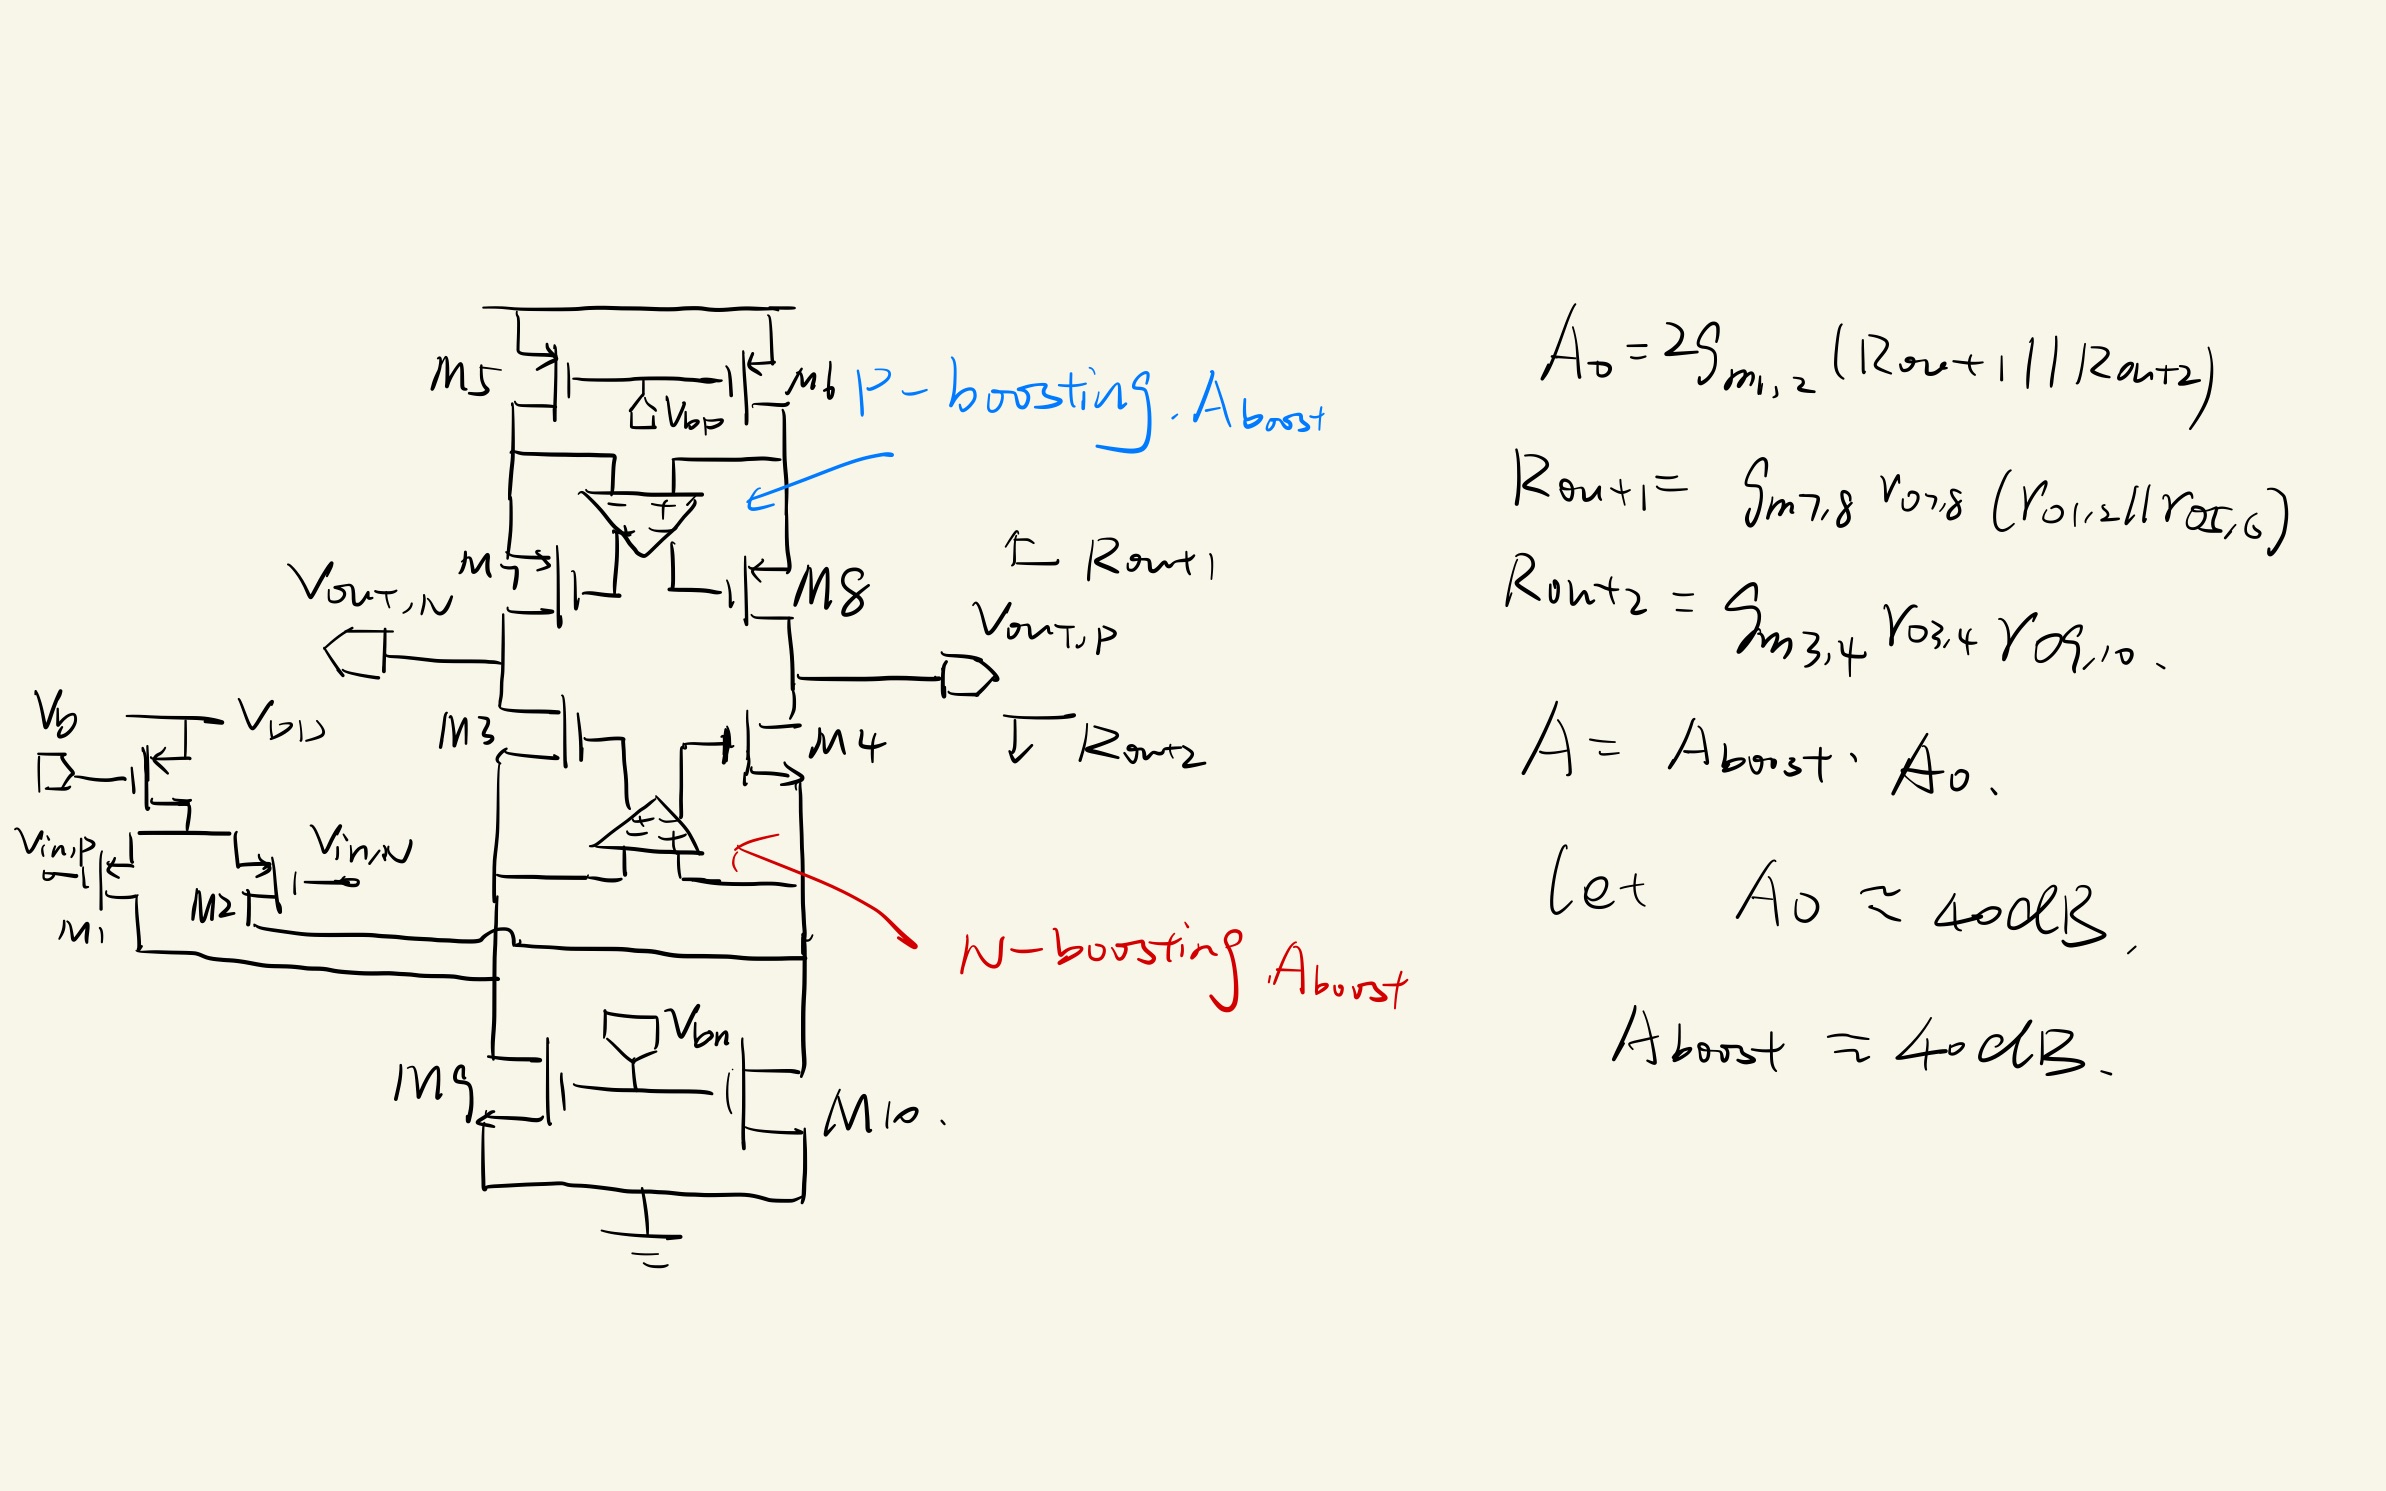 M5
M6
Vbp
P-boosting. Aboost
- +
+ -
M7
M8
Rout1
VOUT,N
VOUT,P
M3
M4
Rout2
Vb
VDD
+ -
- +
Vin,p
Vin,N
M1
M2
N-boosting Aboost
Vbn
M9
M10.
A0 = 2gm1,2 (Rout1 || Rout2)
Rout1 = gm7,8 ro7,8 (ro1,2 || ro5,6)
Rout2 = gm3,4 ro3,4 ro9,10.
A = Aboost · A0.
let A0 ≈ 40dB.
Aboost ≈ 40dB.